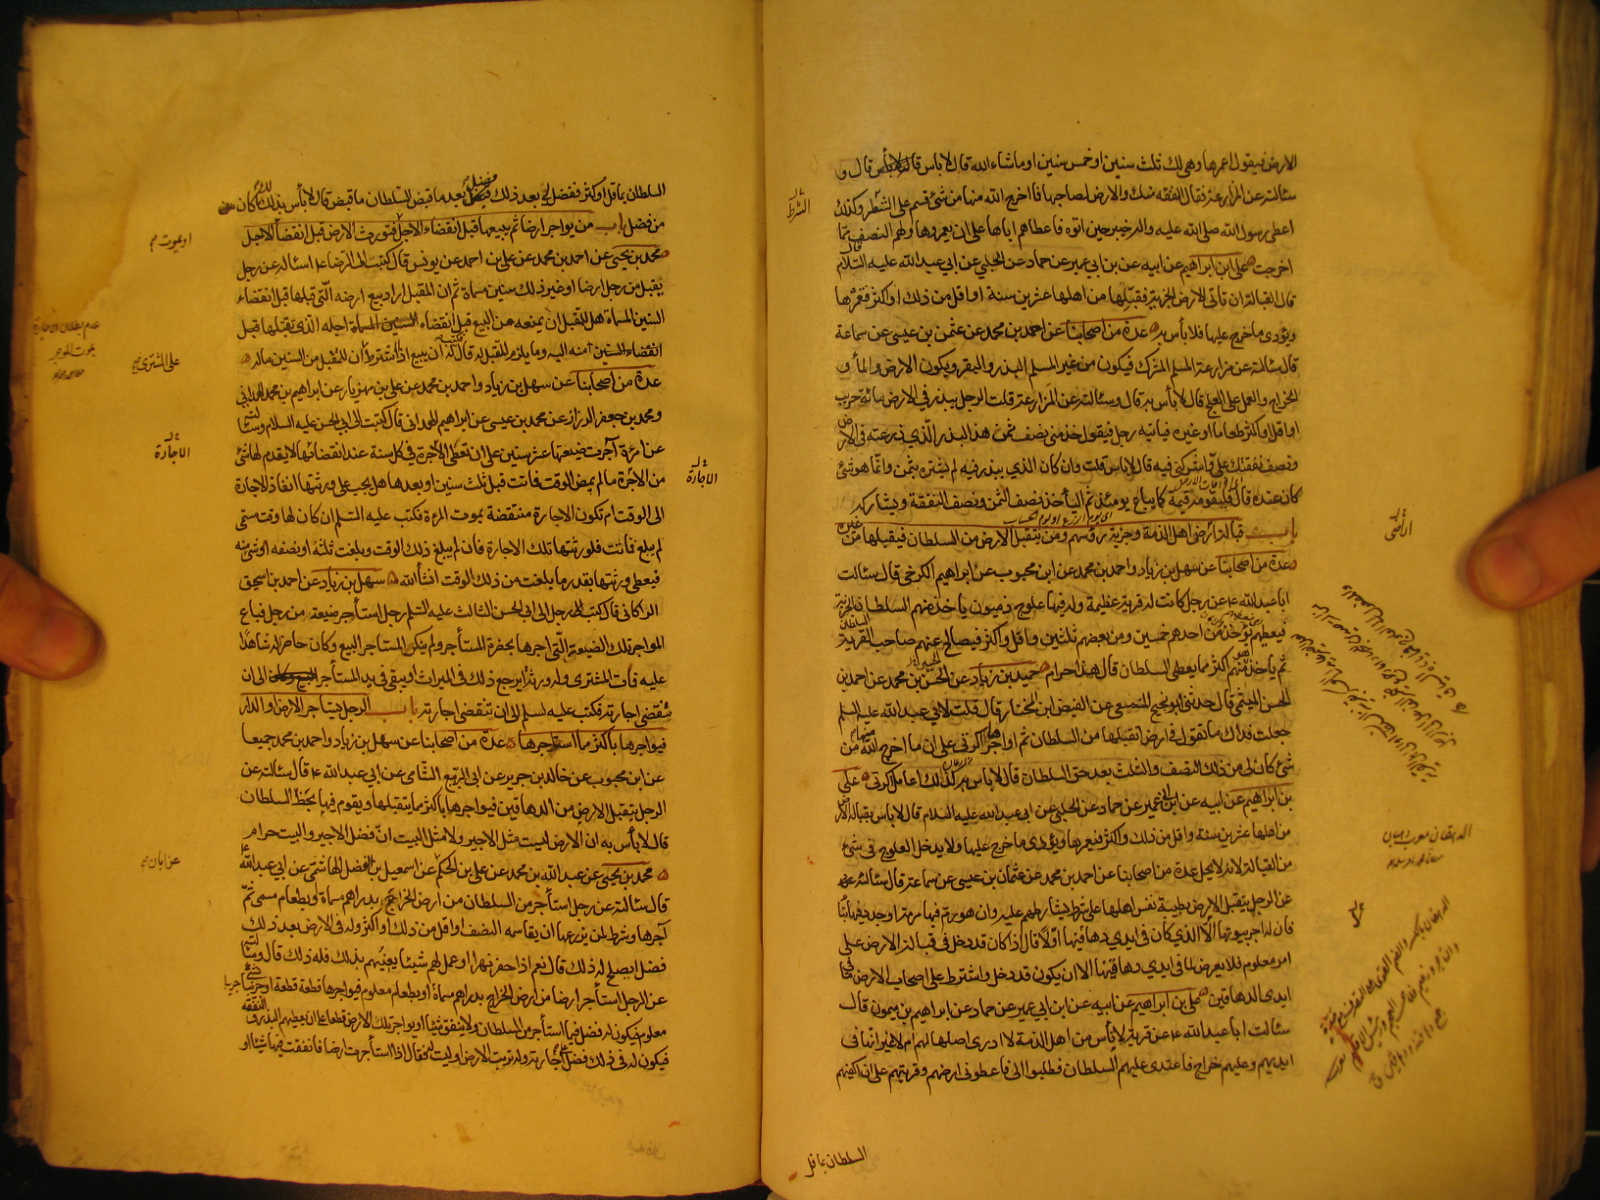 الارض فيقول اعمرها وهي لك ثلث سنين او خمس سنين او ما شاء الله قال لا باس قال و
سئالته عن المزارعة فقال النفقة منك والارض لصاحبها فما اخرج الله منها من شئ قسم على الشطر وكذلك
اعطى رسول الله صلى الله عليه واله خيبر حين اتوه فاعطاهم اياها على ان يعمروها ولهم النصف مما
اخرجت علي ابن ابراهيم عن ابيه عن بن ابي عمير عن حماد عن الحلبي عن ابي عبد الله عليه السلام
قال القبالة ان تاتى الارض الخربة فتقبلها من اهلها عشرين سنة او اقل من ذلك او اكثر فتعمرها
ويؤدى ما خرج عليها فلا بأس به عدة من اصحابنا عن احمد بن محمد عن عثمن بن عيسى عن سماعة
قال سئالته عن مزارعة المسلم المشرك فيكون من غير المسلم البذر والبقر ويكون الارض والمأ و
الخراج والعمل على العلج قال لا بأس به قال وسئالته عن المزارعة قلت الرجل يبذر في الارض مائة جريب
او اقل او اكثر طعاما او غيره فياتيه رجل فيقول خذ منى نصف ثمن هذا البذر الذي زرعته في الارض
ونصف نفقتك على واشركني فيه قال لا باس قلت وان كان الذي يبذر فيه لم يشتره بثمن وانما هو شئ
كان عنده قال فليقومه قيمة كما يباع يومئذ ثم ليأخذ نصف الثمن ونصف النفقة ويشاركه
باب قبالة أرض اهل الذمة وجزية رؤسهم ومن يتقبل الارض من السلطان فيقبلها من غيره
عدة من اصحابنا عن سهل بن زياد واحمد بن محمد عن ابن محبوب عن ابراهيم الكرخي قال سئالت
ابا عبد الله ع عن رجل كانت له قرية عظيمة وله فيها علوج ذميون ياخذ منهم السلطان الجزية
فيعطيهم يؤخذ من احدهم خمسين ومن بعضهم ثلثين واقل واكثر فيصالح عنهم صاحب القرية السلطان
ثم ياخذ منهم اكثر مما يعطى السلطان قال هذا حرام حميد بن زياد عن الحسن بن محمد عن احمد بن
الحسن الميثمي قال حدثني ابو نجيح المسمعي عن الفيض ابن المختار قال قلت لابي عبد الله عليه السلم
جعلت فداك ما تقول في ارض اتقبلها من السلطان ثم اواجرها اكرتى على ان ما اخرج الله منها من
شئ كان لى من ذلك النصف والثلث بعد حق السلطان قال لا باس به كذلك اعامل اكرتى علي
بن ابراهيم عن ابيه عن ابن ابي عمير عن حماد عن الحلبي عن ابي عبد الله عليه السلام قال لا باس بقبالة الارض
من اهلها عشرين سنة واقل من ذلك واكثر فيعمرها ويؤدى ما خرج عليها ولا يدخل العلوج في شئ
من القبالة لانه لا يحل عدة من اصحابنا عن احمد بن محمد عن عثمان بن عيسى عن سماعة قال سئالته
عن الرجل يتقبل الارض بطيبة نفس اهلها على شرط يشارطهم عليه وان هو رم فيها مرمة او جدد فيها بنأ
فان له اجر بيوتها الا الذي كان في ايدي دهاقينها اولا قال اذا كان قد دخل في قبالة الارض على
امر معلوم فلا يعرض لما في ايدي دهاقينها الا ان يكون قد دخل واشترط على اصحاب الارض ما في
ايدى الدهاقين علي بن ابراهيم عن ابيه عن ابن ابي عمير عن حماد عن ابراهيم بن ميمون قال
سئالت ابا عبد الله ع عن قرية لا ناس من اهل الذمة لا ادرى اصلها لهم ام لا غير انها في
ايديهم وعليهم خراج فاعتدى عليهم السلطان فطلبوا الى فاعطونى ارضهم وقريتهم على ان اكفيهم
السلطان بما قل
الشرط
اراضى
الدهقان معرب دهبان
السلطان بما قل او كثر ففضل لى بعد ذلك فضل بعد ما قبض السلطان ما قبض قال لا بأس بذلك لك ما كان
من فضل باب من يواجر ارضا ثم يبيعها قبل انقضاء الاجل فتورث الارض قبل انقضأ الاجل
محمد بن يحيى عن احمد بن محمد عن علي بن احمد عن يونس قال كتبت الى الرضا ع اسئاله عن رجل
يقبل من رجل ارضا او غير ذلك سنين مسماة ثم ان المقبل اراد بيع ارضه التي قبلها قبل انقضاء
السنين المسماة هل للمتقبل ان يمنعه من البيع قبل انقضاء اجله الذي تقبلها قبل
انقضاء السنين منه اليه وما يلزم المتقبل له قال فكتب له ان يبيع اذا اشترط ان للمتقبل من السنين ماله
عدة من اصحابنا عن سهل بن زياد واحمد بن محمد عن علي بن مهزيار عن ابراهيم بن محمد الهمداني
ومحمد بن جعفر الرزاز عن محمد بن عيسى عن ابراهيم الهمداني قال كتبت الى ابي الحسن عليه السلام وسئالته
عن امرأة آجرت ضيعتها عشر سنين على ان تعطى الاجرة في كل سنة عند انقضائها لا يقدم لها شئ
من الاجرة ما لم يمض الوقت فماتت قبل ثلث سنين او بعدها هل يجب على ورثتها انفاذ الاجارة
الى الوقت ام تكون الاجارة منتقضة بموت المرءة فكتب عليه السلم ان كان لها وقت مسمى
لم يبلغ فماتت فلورثتها تلك الاجارة فان لم يبلغ ذلك الوقت وبلغت ثلثه او نصفه او شئ منه
فيعطى ورثتها بقدر ما بلغت من ذلك الوقت انشأ الله سهل بن زياد عن احمد بن اسحق
الرازى قال كتب رجل الى ابي الحسن الثالث عليه السلم رجل استأجر ضيعة من رجل فباع
المواجر تلك الضيعة التي اجرها بحضرة المستأجر ولم ينكر المستأجر البيع وكان حاضرا له شاهدا
عليه فمات المشترى وله ورثة أيرجع ذلك في الميراث او يبقى في يد المستأجر الى ان
تنقضى اجارته فكتب عليه لسلم الى ان تنقضى اجارته باب الرجل يستاجر الارض او الدار
فيواجرها باكثر مما استاجرها عدة من اصحابنا عن سهل بن زياد واحمد بن محمد جميعا
عن ابن محبوب عن خالد بن جرير عن ابي الربيع الشامي عن ابي عبد الله ع قال سئالته عن
الرجل يتقبل الارض من الدهاقين فيواجرها باكثر مما يتقبلها ويقوم فيها بحظ السلطان
قال لا بأس به ان الارض ليست مثل الاجير ولا مثل البيت ان فضل الاجير والبيت حرام
محمد بن يحيى عن عبد الله بن محمد عن علي بن الحكم عن اسمعيل بن الفضل الهاشمي عن ابي عبد الله ع
قال سئالته عن رجل استأجر من السلطان من ارض الخراج بدراهم مسماة وبطعام مسمى ثم
آجرها وشرط لمن يزرعها ان يقاسمه النصف او اقل من ذلك او اكثر وله في الارض بعد ذلك
فضل ايصلح له ذلك قال نعم اذا حفر نهرا او عمل لهم شيئا يعينهم بذلك فله ذلك قال وسئالته
عن الرجل استأجر ارضا من ارض الخراج بدراهم مسماة او بطعام معلوم فيواجرها قطعة قطعة او جريبا جريبا بشئ
معلوم فيكون له فضل فيما استأجر من السلطان ولا ينفق شيئا او يواجر تلك الارض قطعا على ان يعطيهم البذر والنفقة
فيكون له في ذلك فضل على اجارته وله تربة الارض او ليست له فقال اذا استأجرت ارضا فانفقت فيها شيئا او
او يموت
عدم بطلان الاجارة
بموت الموجر
على المشترى
الاجارة
الاجارة
عن ابان